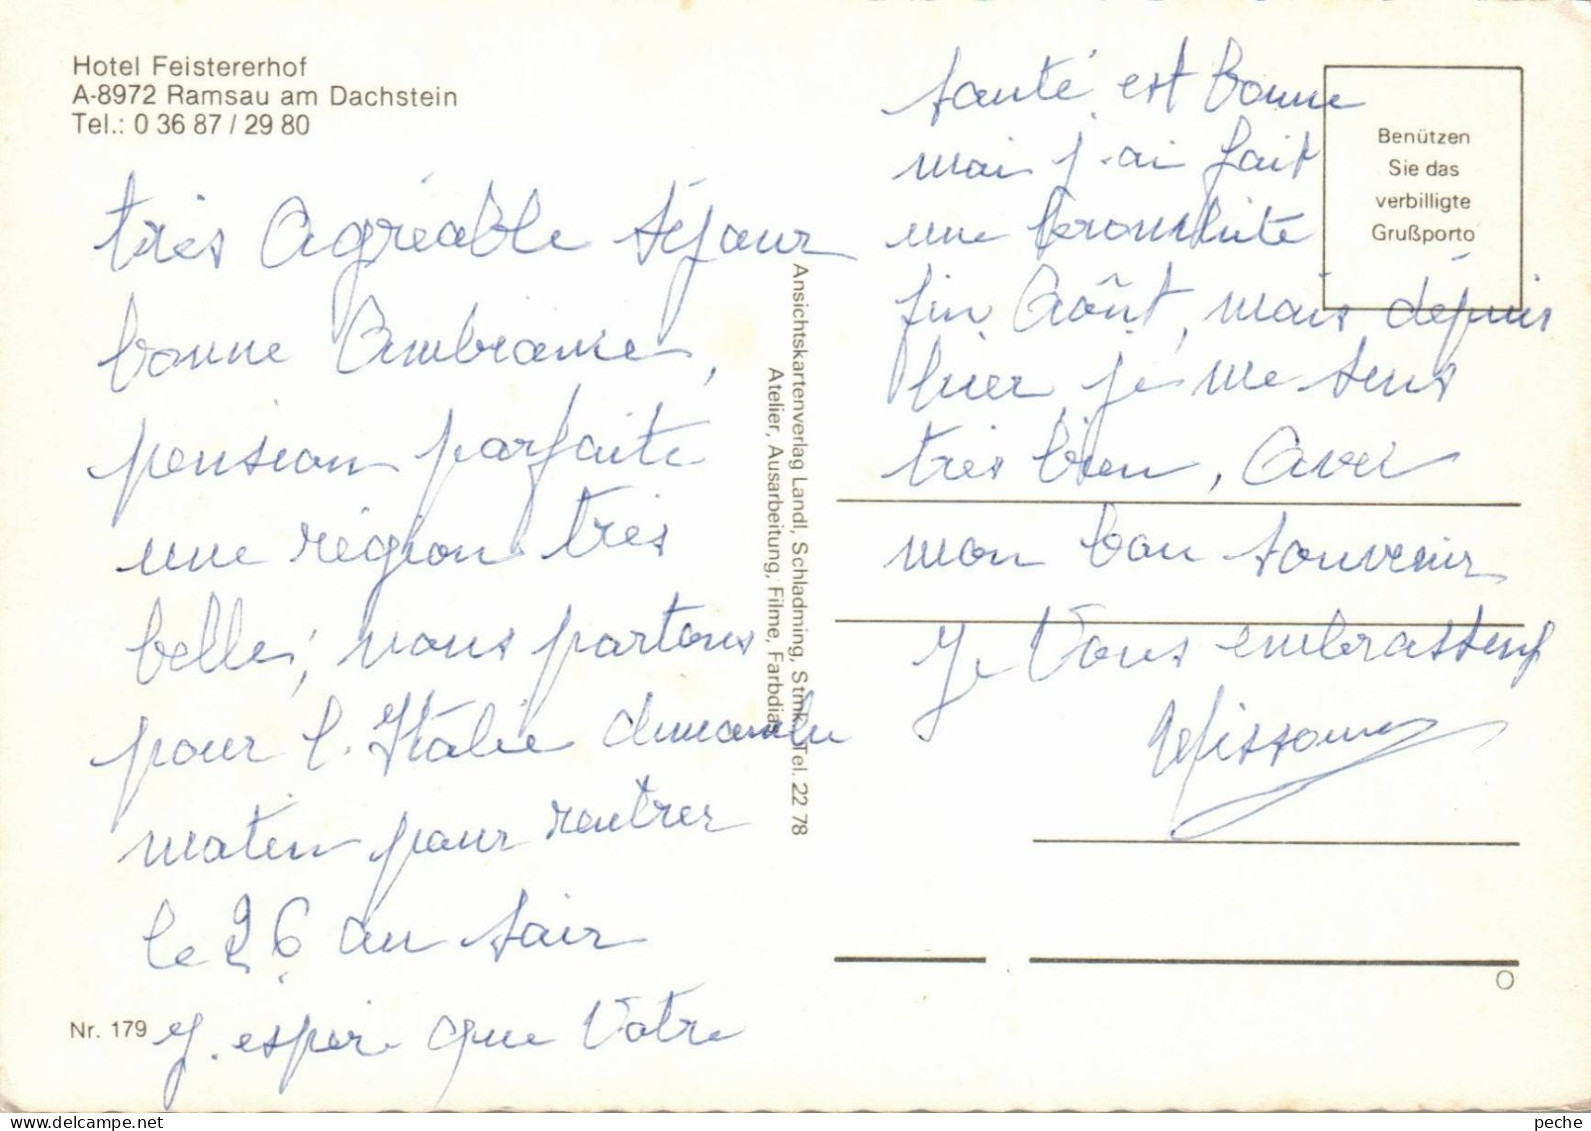 Hotel Feistererhof
A-8972 Ramsau am Dachstein
Tel.: 0 36 87 / 29 80
très agréable séjour
bonne Ambiance,
pension parfaite
une région très
belle, nous partons
pour l'Italie dimanche
matin pour rentrer
le 26 au soir
J. espère que Votre
Nr. 179
Ansichtskartenverlag Landl, Schladming, Stmk., Tel. 22 78
Atelier, Ausarbeitung, Filme, Farbdias
santé est bonne
mai j.ai fait
une bronchite
fin Août, mais depuis
hier je me sens
très bien, avec
mon bon souvenir
Je Vous embrassent
Benützen
Sie das
verbilligte
Grußporto
peche